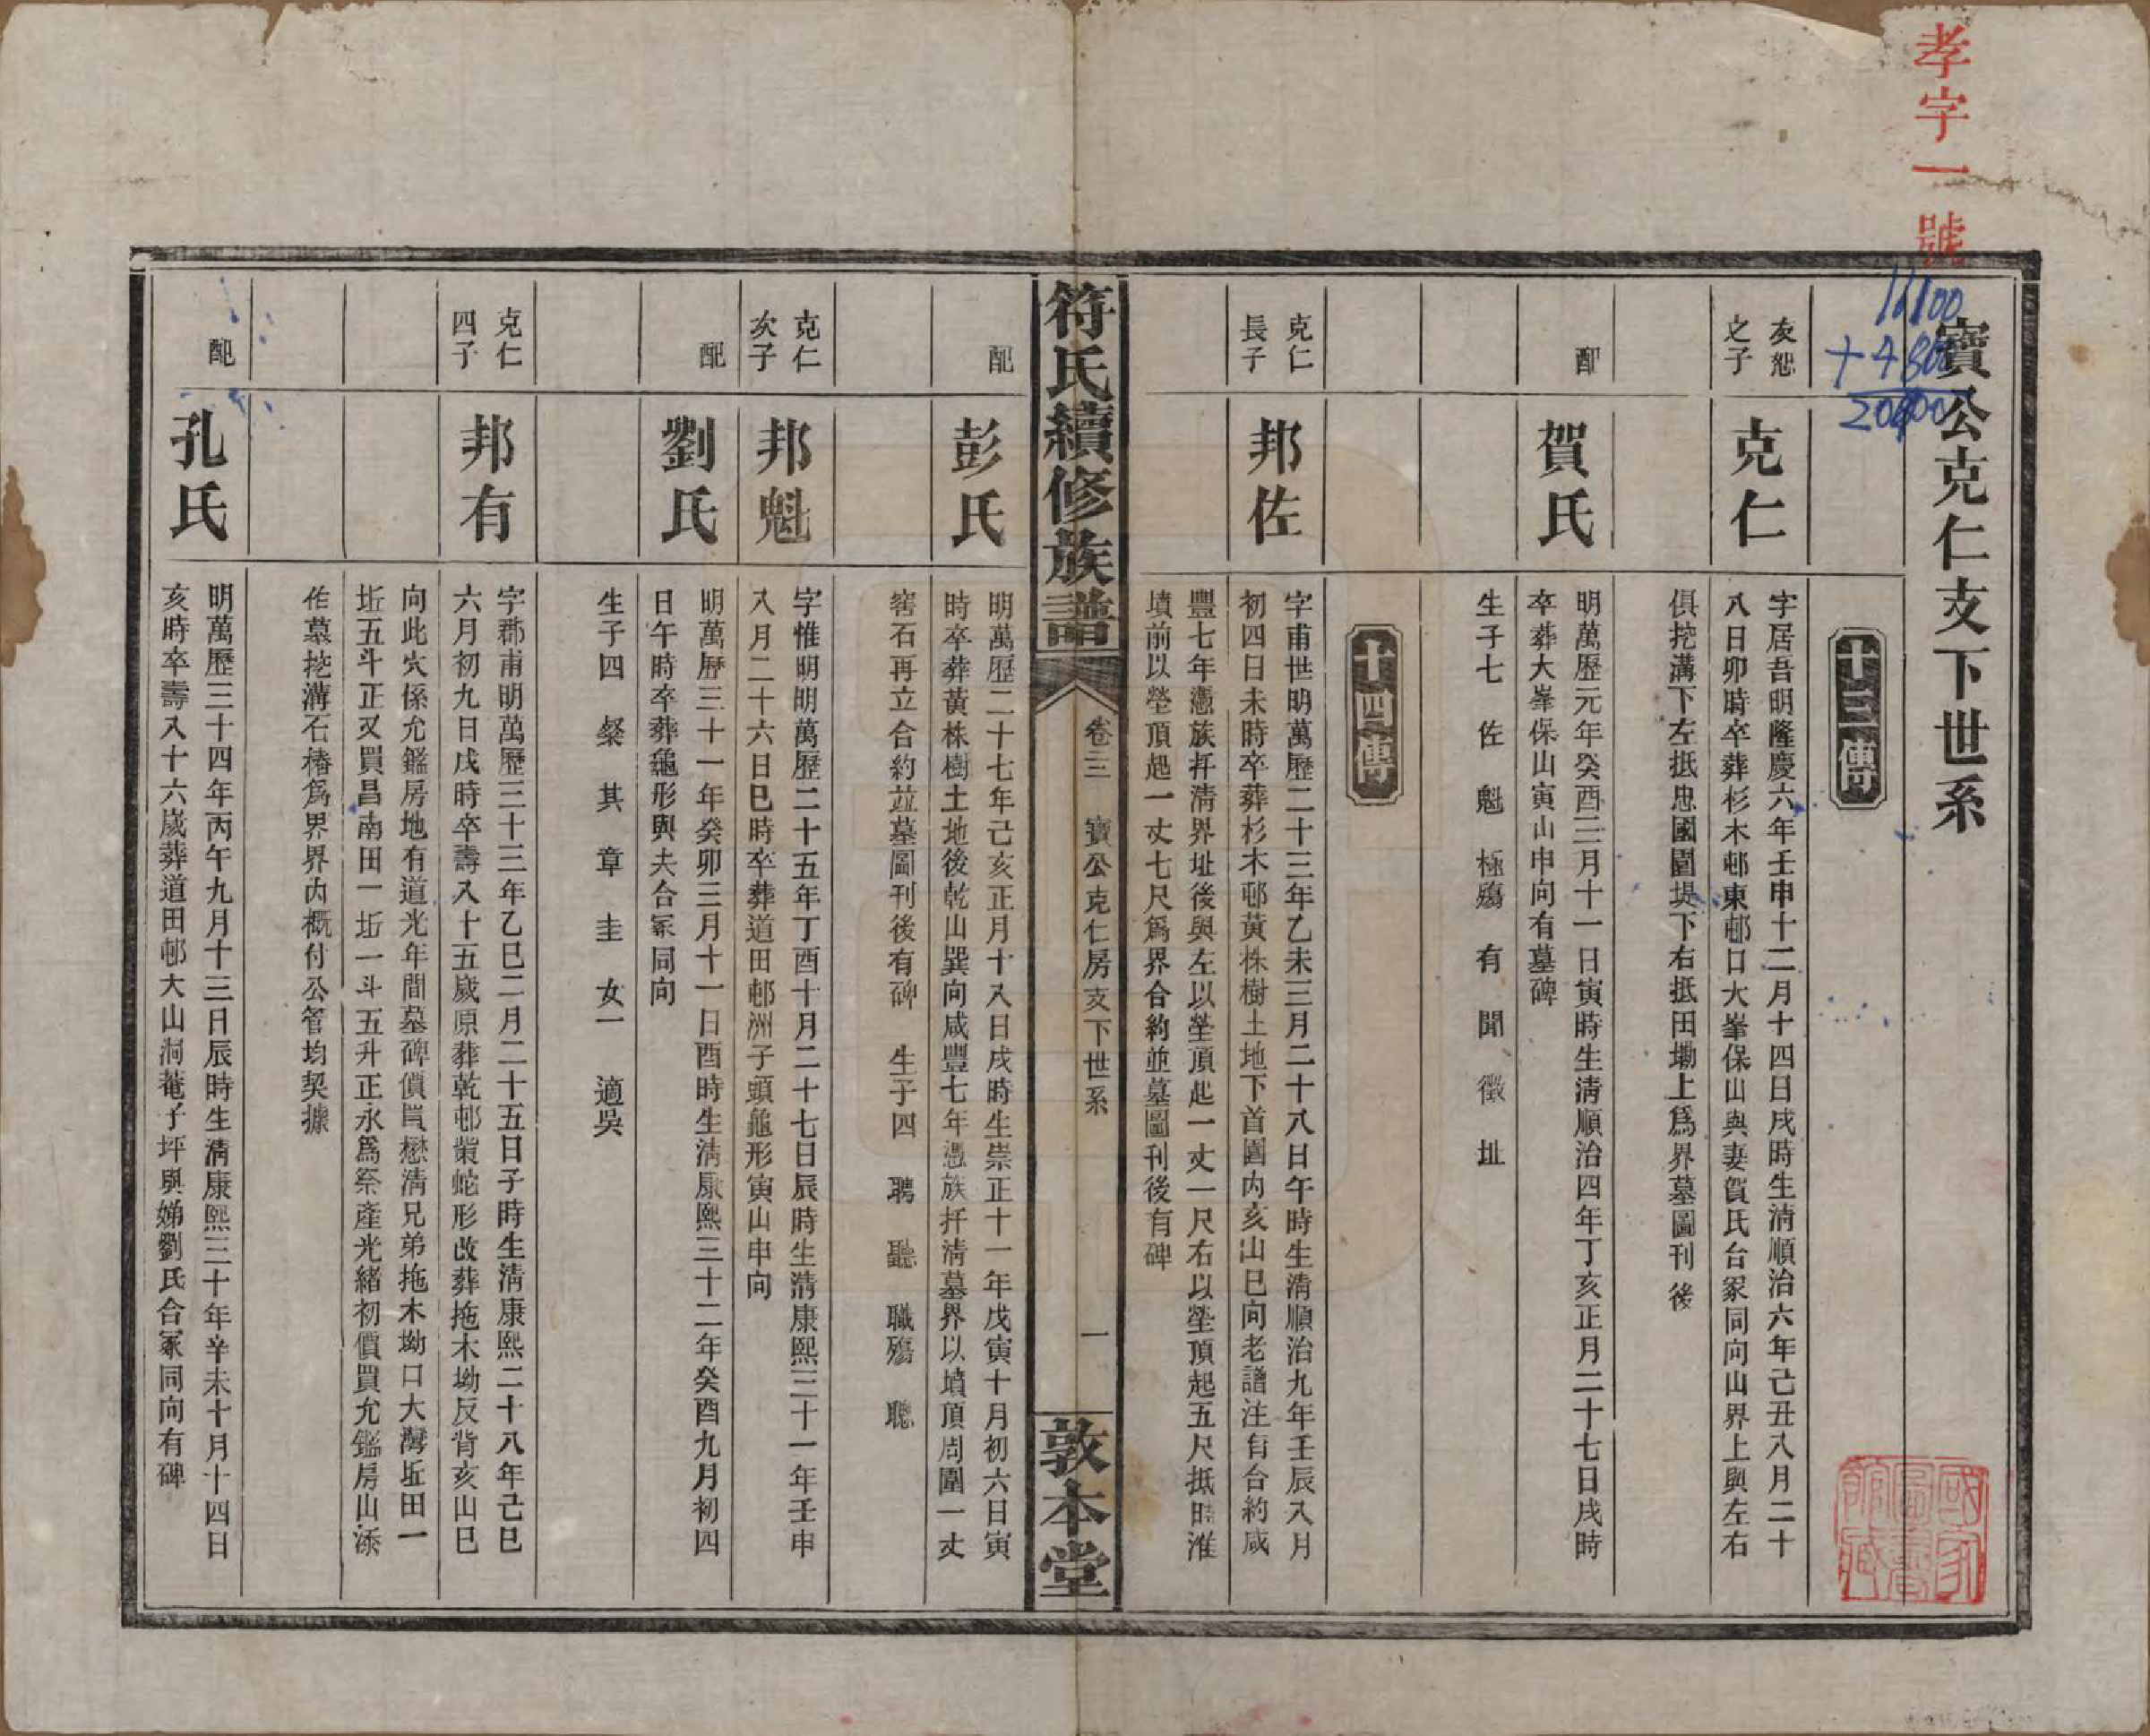 孝字一號
16100
+4800
20900
寶公克仁支下世系
十三傳
友恕之子
克仁
字居吾明隆慶六年壬申十二月十四日戌時生清順治六年己丑八月二十
八日卯時卒葬杉木邨東邨口大峯保山與妻賀氏台冢同向山界上與左右
俱挖溝下左抵忠國園堤下右抵田墈上爲界墓圖刊後
配
賀氏
明萬歷元年癸酉三月十一日寅時生清順治四年丁亥正月二十七日戌時
卒葬大峯保山寅山申向有墓碑
生子七 佐 魁 極殤 有 聞 徵 址
十四傳
克仁長子
邦佐
字甫世明萬歷二十三年乙未三月二十八日午時生清順治九年壬辰八月
初四日未時卒葬杉木邨黃株樹土地下首園內亥山巳向老譜注有合約咸
豐七年憑族扦清界址後與左以塋頂起一丈一尺右以塋頂起五尺抵時淮
墳前以塋頂起一丈七尺爲界合約並墓圖刊後有碑
符氏續修族譜
卷三 寶公克仁房支下世系
一
敦本堂
配
彭氏
明萬歷二十七年己亥正月十八日戌時生崇正十一年戊寅十月初六日寅
時卒葬黃株樹土地後乾山巽向咸豐七年憑族扦清墓界以墳頂周圍一丈
窖石再立合約並墓圖刊後有碑 生子四 聘 聽 職殤 聰
克仁次子
邦魁
字惟明明萬歷二十五年丁酉十月二十七日辰時生清康熙三十一年壬申
八月二十六日巳時卒葬道田邨洲子頭龜形寅山申向
配
劉氏
明萬歷三十一年癸卯三月十一日酉時生清康熙三十二年癸酉九月初四
日午時卒葬龜形與夫合冢同向
生子四 粲 其 章 圭 女一 適吳
克仁四子
邦有
字郡甫明萬歷三十三年乙巳二月二十五日子時生清康熙二十八年己巳
六月初九日戌時卒壽八十五歲原葬乾邨紫蛇形改葬拖木坳反背亥山巳
向此穴係允鑑房地有道光年間墓碑價買懋清兄弟拖木坳口大灣坵田一
坵五斗正又買昌南田一坵一斗五升正永爲祭產光緒初價買允鑑房山添
作墓挖溝石椿爲界界內概付公管均契據
配
孔氏
明萬歷三十四年丙午九月十三日辰時生清康熙三十年辛未十月十四日
亥時卒壽八十六歲葬道田邨大山洞菴子坪與娣劉氏合冢同向有碑
國家圖書館藏